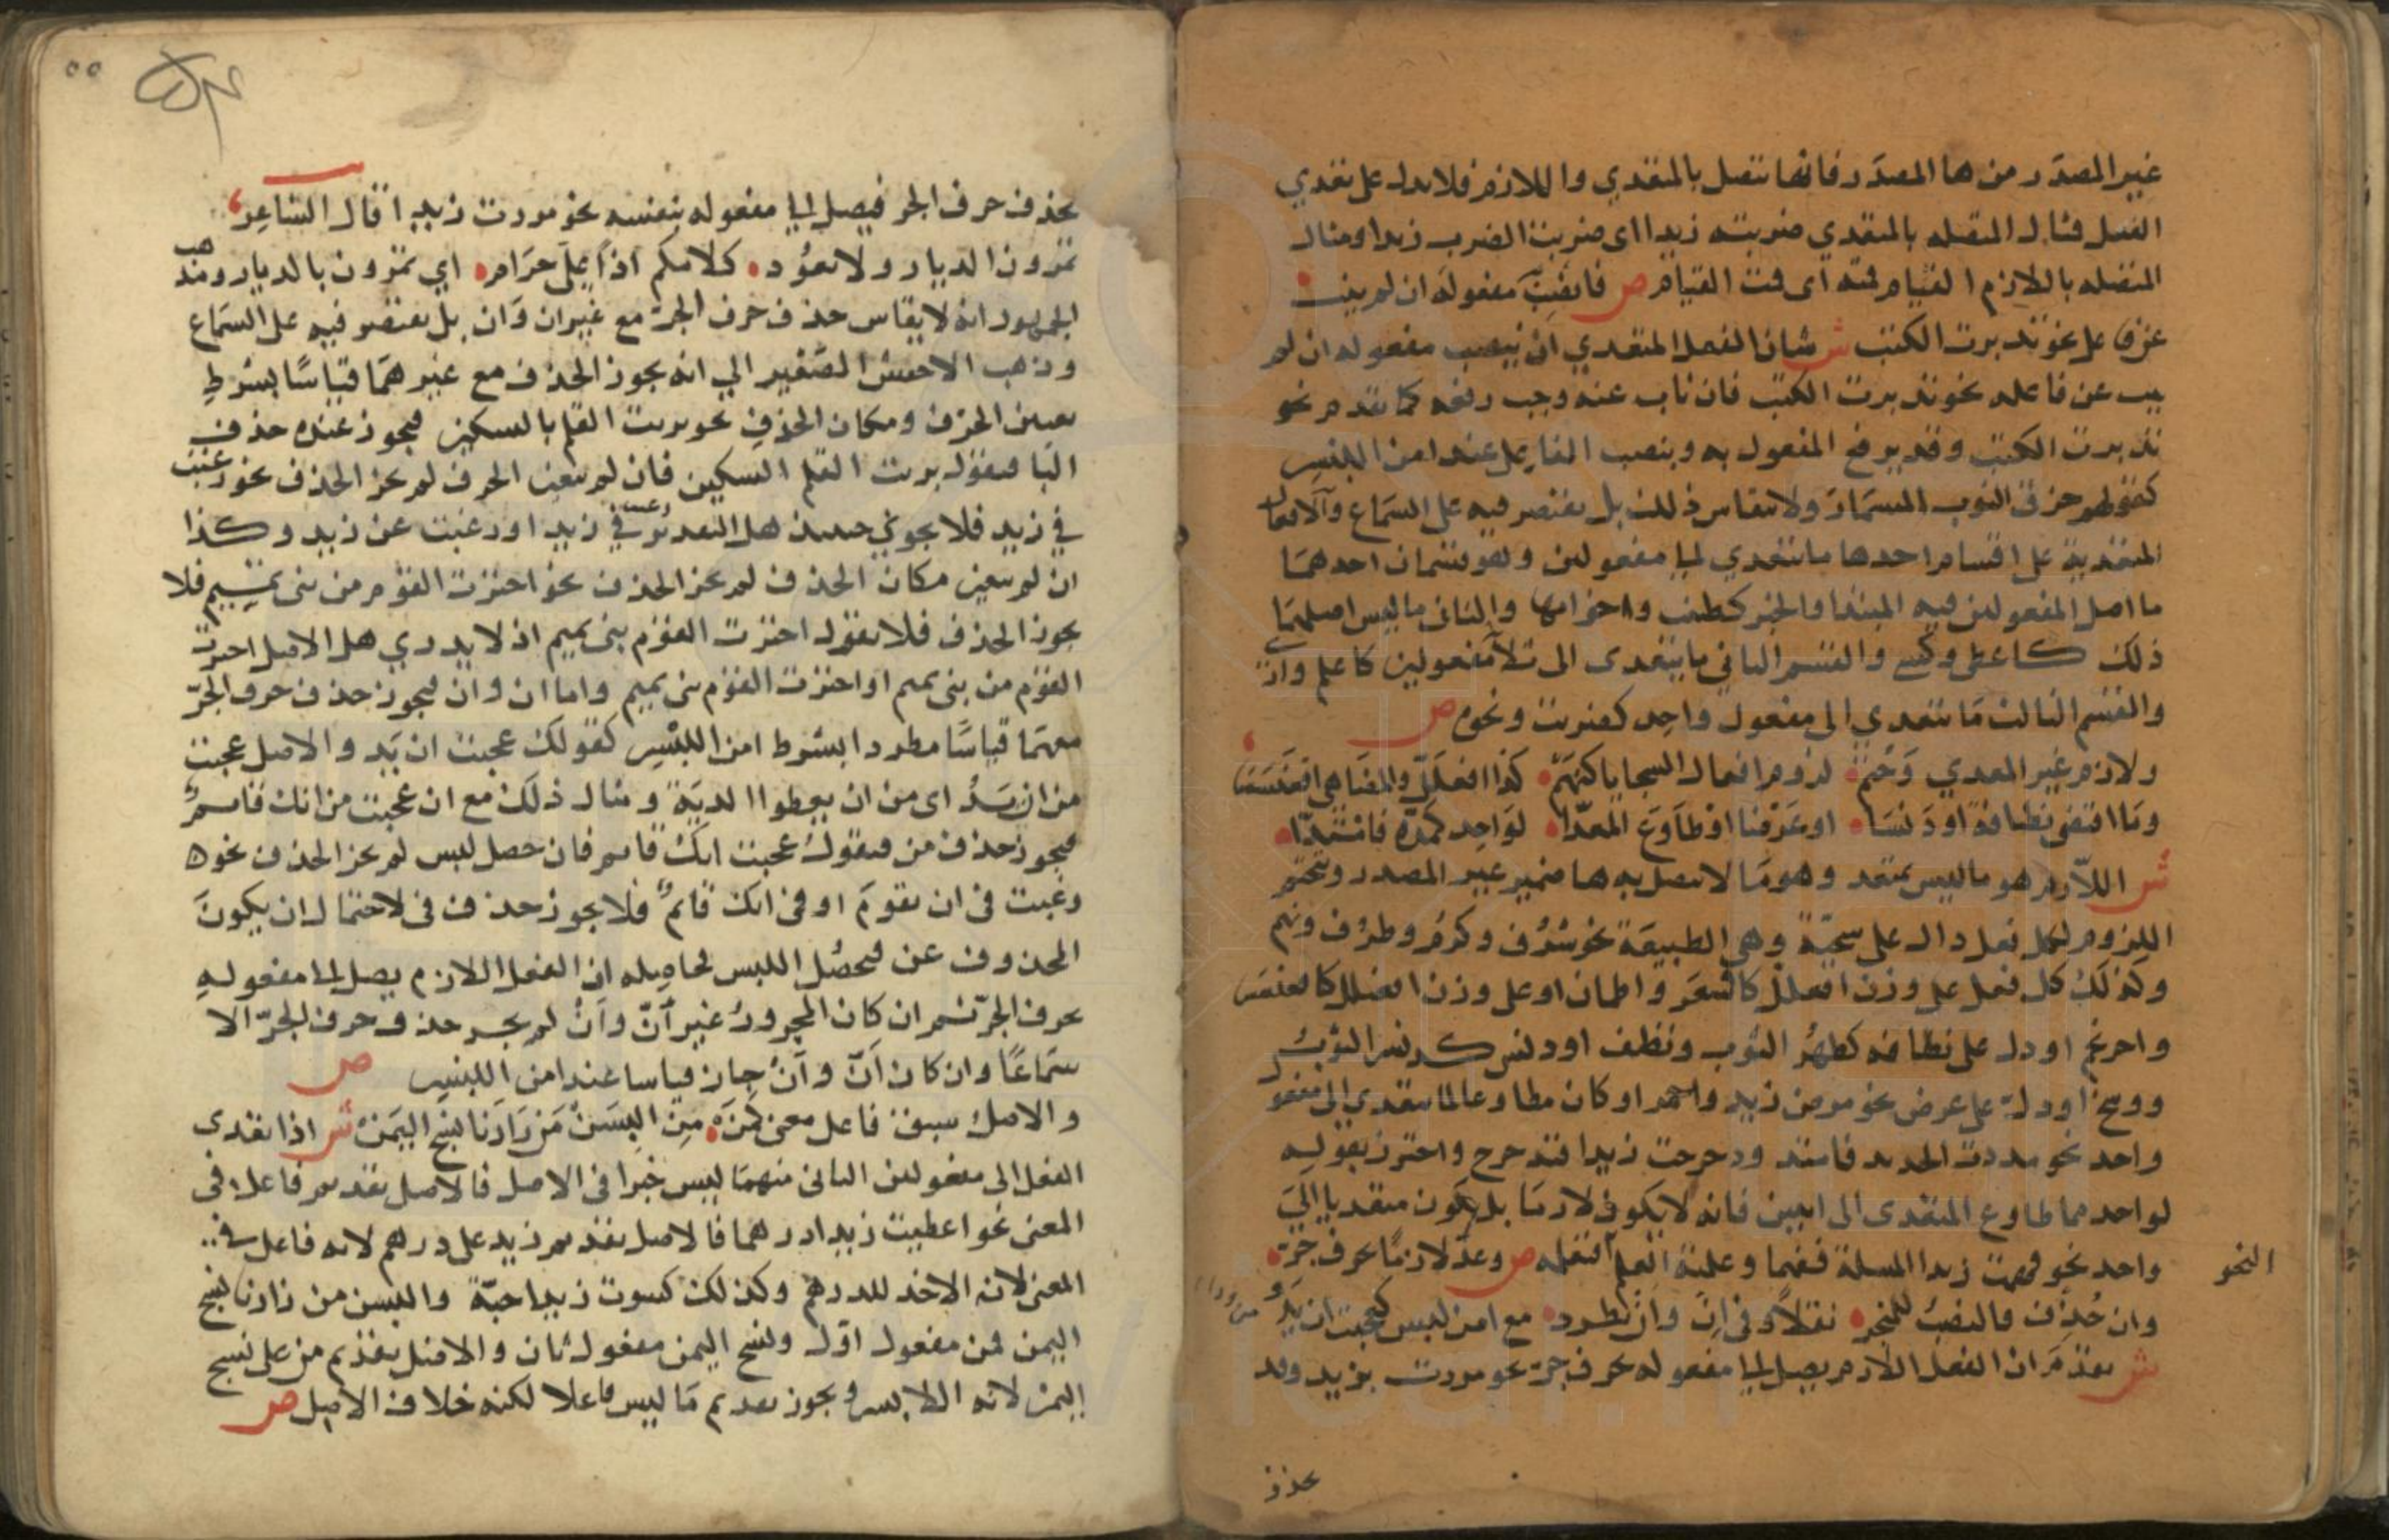 غير المصدر من ها المصدر فانها تتصل بالمتعدي واللازم فلا تدل على تعدي
الفعل فمثال المتصله بالمتعدي ضربته زيدا اى ضربت الضرب زيدا ومثال
المتصله باللازم القيام قمته اى قمت القيام ص فانصب به مفعوله ان لم ينب
عن فاعل نحو تدبرت الكتب ش شان الفعل المتعدي ان ينصب مفعوله ان لم
ينب عن فاعله نحو تدبرت الكتب فان ناب عنه وجب رفعه كما تقدم نحو
تدبرت الكتب وقد يرفع المفعول به وينصب الفاعل عند امن اللبس
كقولهم خرق الثوب المسمار ولا ينقاس ذلك بل يقتصر فيه على السماع والافعال
المتعدية على اقسام احدها ما يتعدي الى مفعولين وهو قسمان احدهما
ما اصل المفعولين فيه المبتدا والخبر كظن واخواتها والثاني ما ليس اصلهما
ذلك كاعطى وكسى والقسم الثاني ما يتعدى الى ثلاثة مفعولين كاعلم وارى
والقسم الثالث ما يتعدي الى مفعول واحد كضربت ونحوه ص
ولازم غير المعدي وحتم لزوم افعال السجايا كنهم كذا افعلل والمضاهي اقعنسسا
وما اقتضى نظافة او دنسا او عرضا او طاوع المعدا لواحد كمده فامتدا
ش اللازم هو ما ليس بمتعد وهو ما لا تتصل به ها ضمير غير المصدر ويتحتم
اللزوم لكل فعل دال على سجية وهي الطبيعة نحو شرف وكرم وظرف ونهم
وكذلك كل فعل على وزن افعلل كاقشعر واطمان او على وزن افعنلل كاقعنسس
واحرنجم او دل على نظافه كطهر الثوب ونظف او دنس كدنس الثوب
ووسخ او دل على عرض نحو مرض زيد واحمر او كان مطاوعا لما يتعدي الى مفعول
واحد نحو مددت الحديد فامتد ودحرجت زيدا فتدحرج واحترز بقوله
لواحد مما طاوع المتعدى الى اثنين فانه لا يكون لازما بل يكون متعديا الى
واحد نحو فهمت زيدا المسلة ففهما وعلمته النحو فتعلمه ص وعد لازما بحرف جر
النحو
وان حذف فالنصب للمنجر نقلا وفي ان وان يطرد مع امن لبس كعجبت ان يدوا
ش تقدم ان الفعل اللازم يصل الى مفعوله بحرف جر نحو مررت بزيد وقد
بحذف
٥٥
بحذف حرف الجر فيصل الى مفعوله بنفسه نحو مررت زيدا قال الشاعر
تمرون الديار ولا تعود كلامكم اذا علي حرام اي تمرون بالديار ومذهب
الجمهور انه لا يقاس حذف حرف الجر مع غير ان وان بل يقتصر فيه على السماع
وذهب الاخفش الصغير الي انه يجوز الحذف مع غيرهما قياسا بشرط
تعين الحرف ومكان الحذف نحو بريت القلم بالسكين فيجوز عنده حذف
البا فيقول بريت القلم السكين فان لم يتعين الحرف لم يجز الحذف نحو رغبت
في زيد فلا يجوز حينئذ هل التقدير رغبت في زيد او رغبت عن زيد وكذا
ان لم يتعين مكان الحذف لم يجز الحذف نحو اخترت القوم من بنى تميم فلا
يجوز الحذف فلا يقول اخترت القوم بنى تميم اذ لا يدري هل الاصل اخترت
القوم من بنى تميم او اخترت القوم بنى تميم واما ان وان فيجوز حذف حرف الجر
معهما قياسا مطردا بشرط امن اللبس كقولك عجبت ان يد والاصل عجبت
من ان يدوا اى من ان يعطوا الدية ومثال ذلك مع ان عجبت من انك قايم
فيجوز حذف من فيقول عجبت انك قايم فان حصل لبس لم يجز الحذف نحو
رغبت في ان تقوم او في انك قائم فلا يجوز حذف في لاحتمال ان يكون
المحذوف عن فيحصل اللبس لحاصله ان الفعل اللازم يصل الى مفعوله
بحرف الجر ثم ان كان المجرور غير ان وان لم يجز حذف حرف الجر الا
سماعا وان كان ان وان جاز قياسا عند امن اللبس ص
والاصل سبق فاعل معنى كمن من البسن من زارنا نسج اليمن ش اذا تعدى
الفعل الى مفعولين الثاني منهما ليس خبرا في الاصل فالاصل تقديم فاعل في
المعنى نحو اعطيت زيدا درهما فالاصل تقديم زيد على درهم لانه فاعل في
المعنى لانه الاخذ للدرهم وكذلك كسوت زيدا جبة والبسن من زارنا نسج
اليمن فمن مفعول اول ونسج اليمن مفعول ثان والاصل تقديم من على نسج
اليمن لانه اللابس ويجوز تقديم ما ليس فاعلا لكنه خلاف الاصل ص